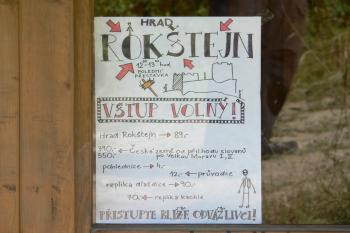 HRAD
ROKŠTEJN
12⁰⁰-13⁰⁰ hod
POLEDNÍ
PŘESTÁVKA
VSTUP VOLNÝ!
Hrad Rokštejn → 89,-
390,- ← České země od příchodu slovanů
550,- po Velkou Moravu I, II
pohlednice → 4,-
12,- ← průvodce
replika dlaždice → 90,-
70,- ← replika kachle
PŘISTUPTE BLÍŽE ODVÁŽLIVCI!